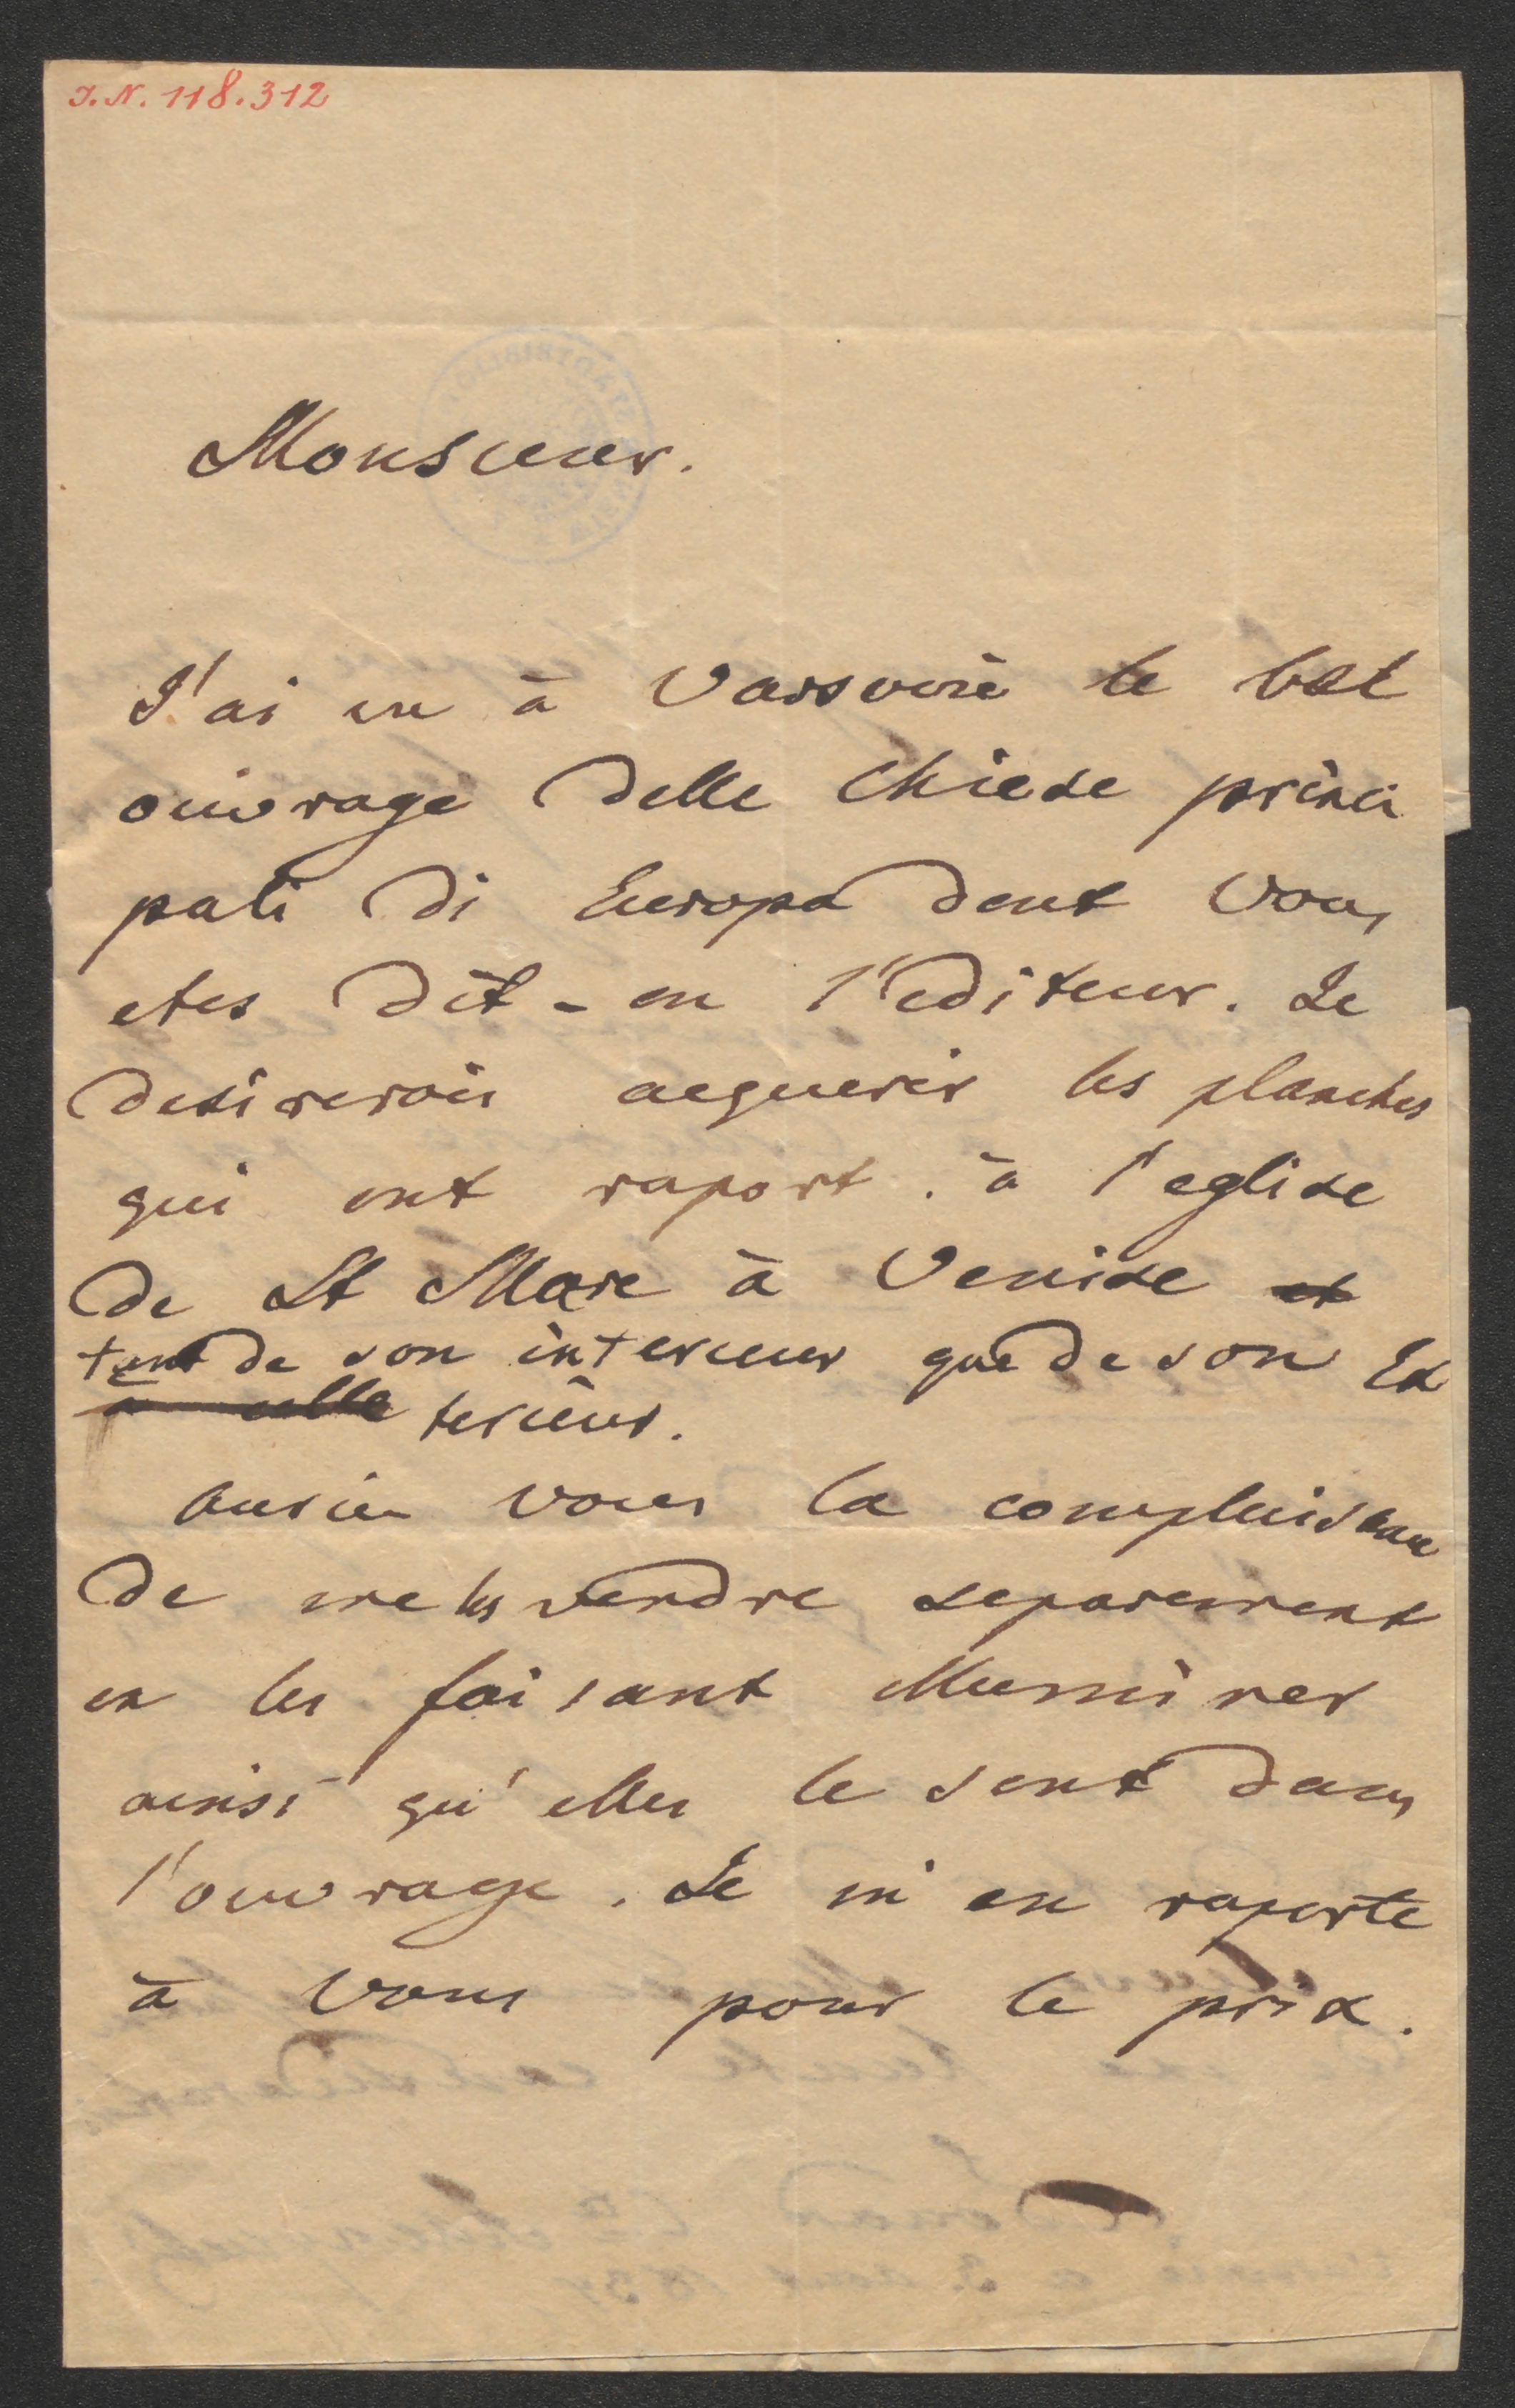 I.N. 118.312
Monsieur.
J'ai vu à Varsovie le bel
ouvrage delle chiese princi
pali di Europa dont vous
etes dit-on l'editeur. Je
desirerois aequerir les planches
qui ont raport à l'eglise
de St Marc à Venise et
tant de son interieur que de son Ex
à celle terieur.
auriez vous la complaisance
de me les vendre separement
en les faisant illuminer
ainsi qu'elles le sont dans
l'ouvrage. Je m'en raporte
à vous pour le prix.